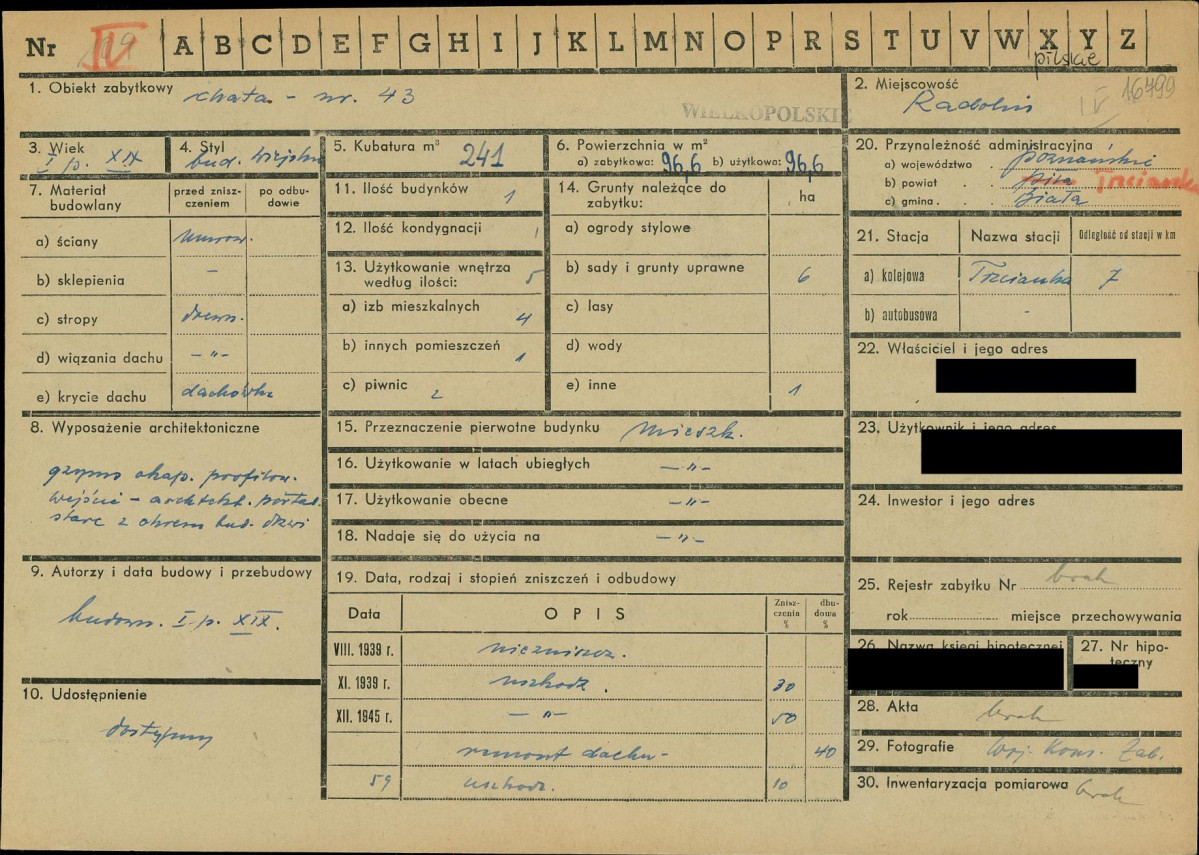 Nr IV A B C D E F G H I J K L M N O P R S T U V W X Y Z
pilskie
1. Obiekt zabytkowy chata - nr. 43
WIELKOPOLSKIE
2. Miejscowość
Radolin
IV 16499
3. Wiek
I p. XIX
4. Styl
bud. wiejskie
5. Kubatura m³ 241
6. Powierzchnia w m²
a) zabytkowa: 96,6 b) użytkowa: 96,6
7. Materiał budowlany
przed zniszczeniem
po odbudowie
a) ściany murow.
b) sklepienia -
c) stropy drewn.
d) wiązania dachu -"-
e) krycie dachu dachówka
8. Wyposażenie architektoniczne
gzyms okap. profilow.
wejście - architekt. portal.
stare z okresu bud. drzwi
9. Autorzy i data budowy i przebudowy
budown. I p. XIX.
10. Udostępnienie
dostępny
11. Ilość budynków 1
12. Ilość kondygnacji 1
13. Użytkowanie wnętrza
według ilości: 5
a) izb mieszkalnych 4
b) innych pomieszczeń 1
c) piwnic 2
14. Grunty należące do
zabytku: ha
a) ogrody stylowe
b) sady i grunty uprawne 6
c) lasy
d) wody
e) inne 1
15. Przeznaczenie pierwotne budynku mieszk.
16. Użytkowanie w latach ubiegłych -"-
17. Użytkowanie obecne -"-
18. Nadaje się do użycia na -"-
19. Data, rodzaj i stopień zniszczeń i odbudowy
Data OPIS Zniszczenia % dbudowa %
VIII. 1939 r. niezniszcz.
XI. 1939 r. uszkodz. 30
XII. 1945 r. -"- 50
remont dachu - 40
59 uszkodz. 10
20. Przynależność administracyjna
a) województwo poznańskie
b) powiat piła Trzcianka
c) gmina Biała
21. Stacja Nazwa stacji Odległość od stacji w km
a) kolejowa Trzcianka 7
b) autobusowa -
22. Właściciel i jego adres
23. Użytkownik i jego adres
24. Inwestor i jego adres
25. Rejestr zabytku Nr brak
rok miejsce przechowywania
26. Nazwa księgi hipotecznej
27. Nr hipoteczny
28. Akta brak
29. Fotografie Woj. Kons. Zab.
30. Inwentaryzacja pomiarowa brak